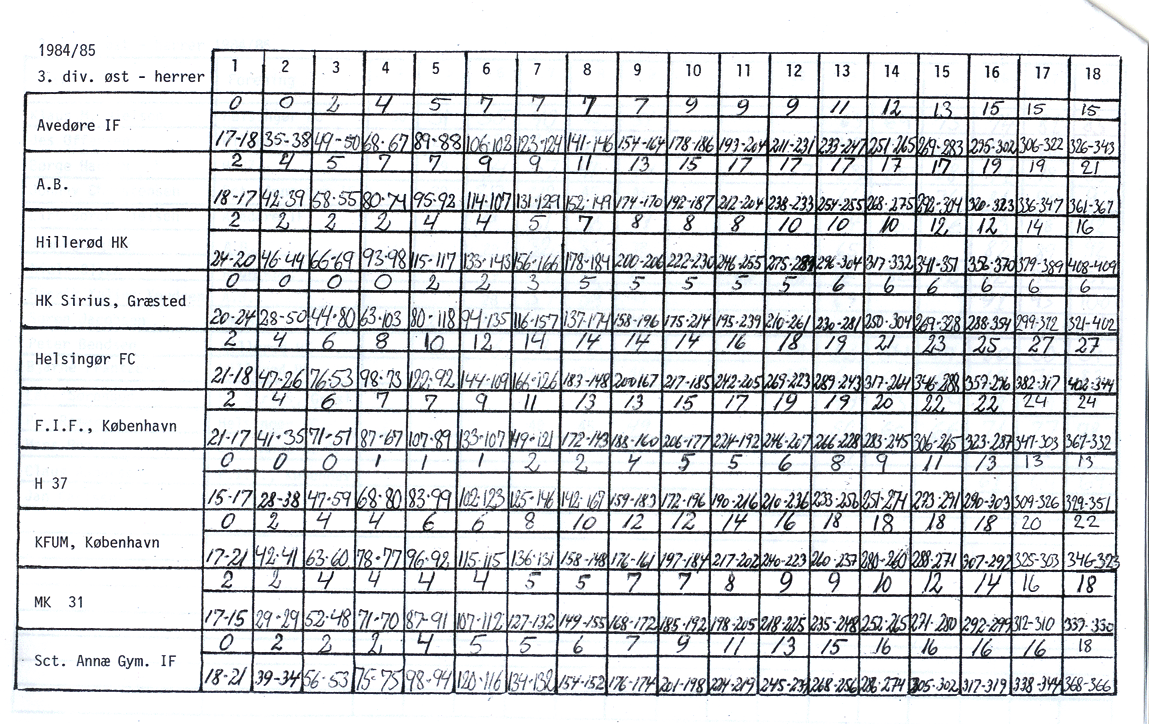 1984/85
3. div. øst - herrer 1 2 3 4 5 6 7 8 9 10 11 12 13 14 15 16 17 18
0 0 2 4 5 7 7 7 7 9 9 9 11 12 13 15 15 15
Avedøre IF 17-18 35-38 49-50 68-67 89-88 106-102 123-124 141-146 154-164 178-186 193-204 211-231 233-247 251-265 269-283 306-322 326-343
2 4 5 7 7 9 9 11 13 15 17 17 17 17 17 19 19 21
A.B. 18-17 42-39 58-55 80-74 95-92 114-107 131-129 152-149 174-170 192-187 212-204 238-233 254-255 268-275 292-304 320-323 336-347 361-367
2 2 2 2 4 4 5 7 8 8 8 10 10 10 12 12 14 16
Hillerød HK 24-20 46-44 66-69 93-98 115-117 133-143 156-166 178-184 200-206 222-230 246-255 296-304 317-332 341-351 356-370 379-389 408-409
0 0 0 0 2 2 3 5 5 5 5 5 6 6 6 6 6 6
HK Sirius, Græsted 20-24 28-50 44-80 63-103 80-118 94-135 116-157 137-174 158-196 175-214 195-239 210-261 230-281 250-304 269-328 288-351 321-402
2 4 6 8 10 12 14 14 14 14 16 18 19 21 23 25 27 27
Helsingør FC 21-18 47-26 76-53 98-73 122-92 144-109 166-126 183-148 200-167 217-185 242-205 269-223 289-243 317-264 346-288 357-296 382-317 402-344
2 4 6 7 7 9 11 13 13 15 17 19 19 20 22 22 24 24
F.I.F., København 21-17 41-35 71-51 87-67 107-89 133-107 149-121 172-143 188-160 206-177 224-192 246-207 266-228 283-245 306-265 323-287 347-303 367-332
0 0 0 1 1 1 2 2 4 5 5 6 8 9 11 13 13 13
H 37 15-17 28-38 47-59 68-80 83-99 102-123 125-146 142-167 159-183 172-196 190-216 210-236 233-256 251-274 273-291 290-303 309-326 329-351
0 2 4 4 6 6 8 10 12 12 14 16 18 18 18 18 20 22
KFUM, København 17-21 42-41 63-60 78-77 96-92 115-115 136-131 158-148 176-161 197-184 217-202 240-223 260-237 280-260 288-271 307-292 325-303 346-323
2 2 4 4 4 4 5 5 7 7 8 9 9 10 12 14 16 18
MK 31 17-15 29-29 52-48 71-70 87-91 107-112 127-132 149-155 168-172 185-192 198-205 218-225 235-248 252-265 271-280 292-299 312-310 337-330
0 2 2 2 4 5 5 6 7 9 11 13 15 16 16 16 16 18
Sct. Annæ Gym. IF 18-21 39-34 56-53 75-75 98-94 120-116 134-132 154-152 176-174 201-198 224-219 245-234 268-256 286-274 305-302 317-319 338-344 368-366